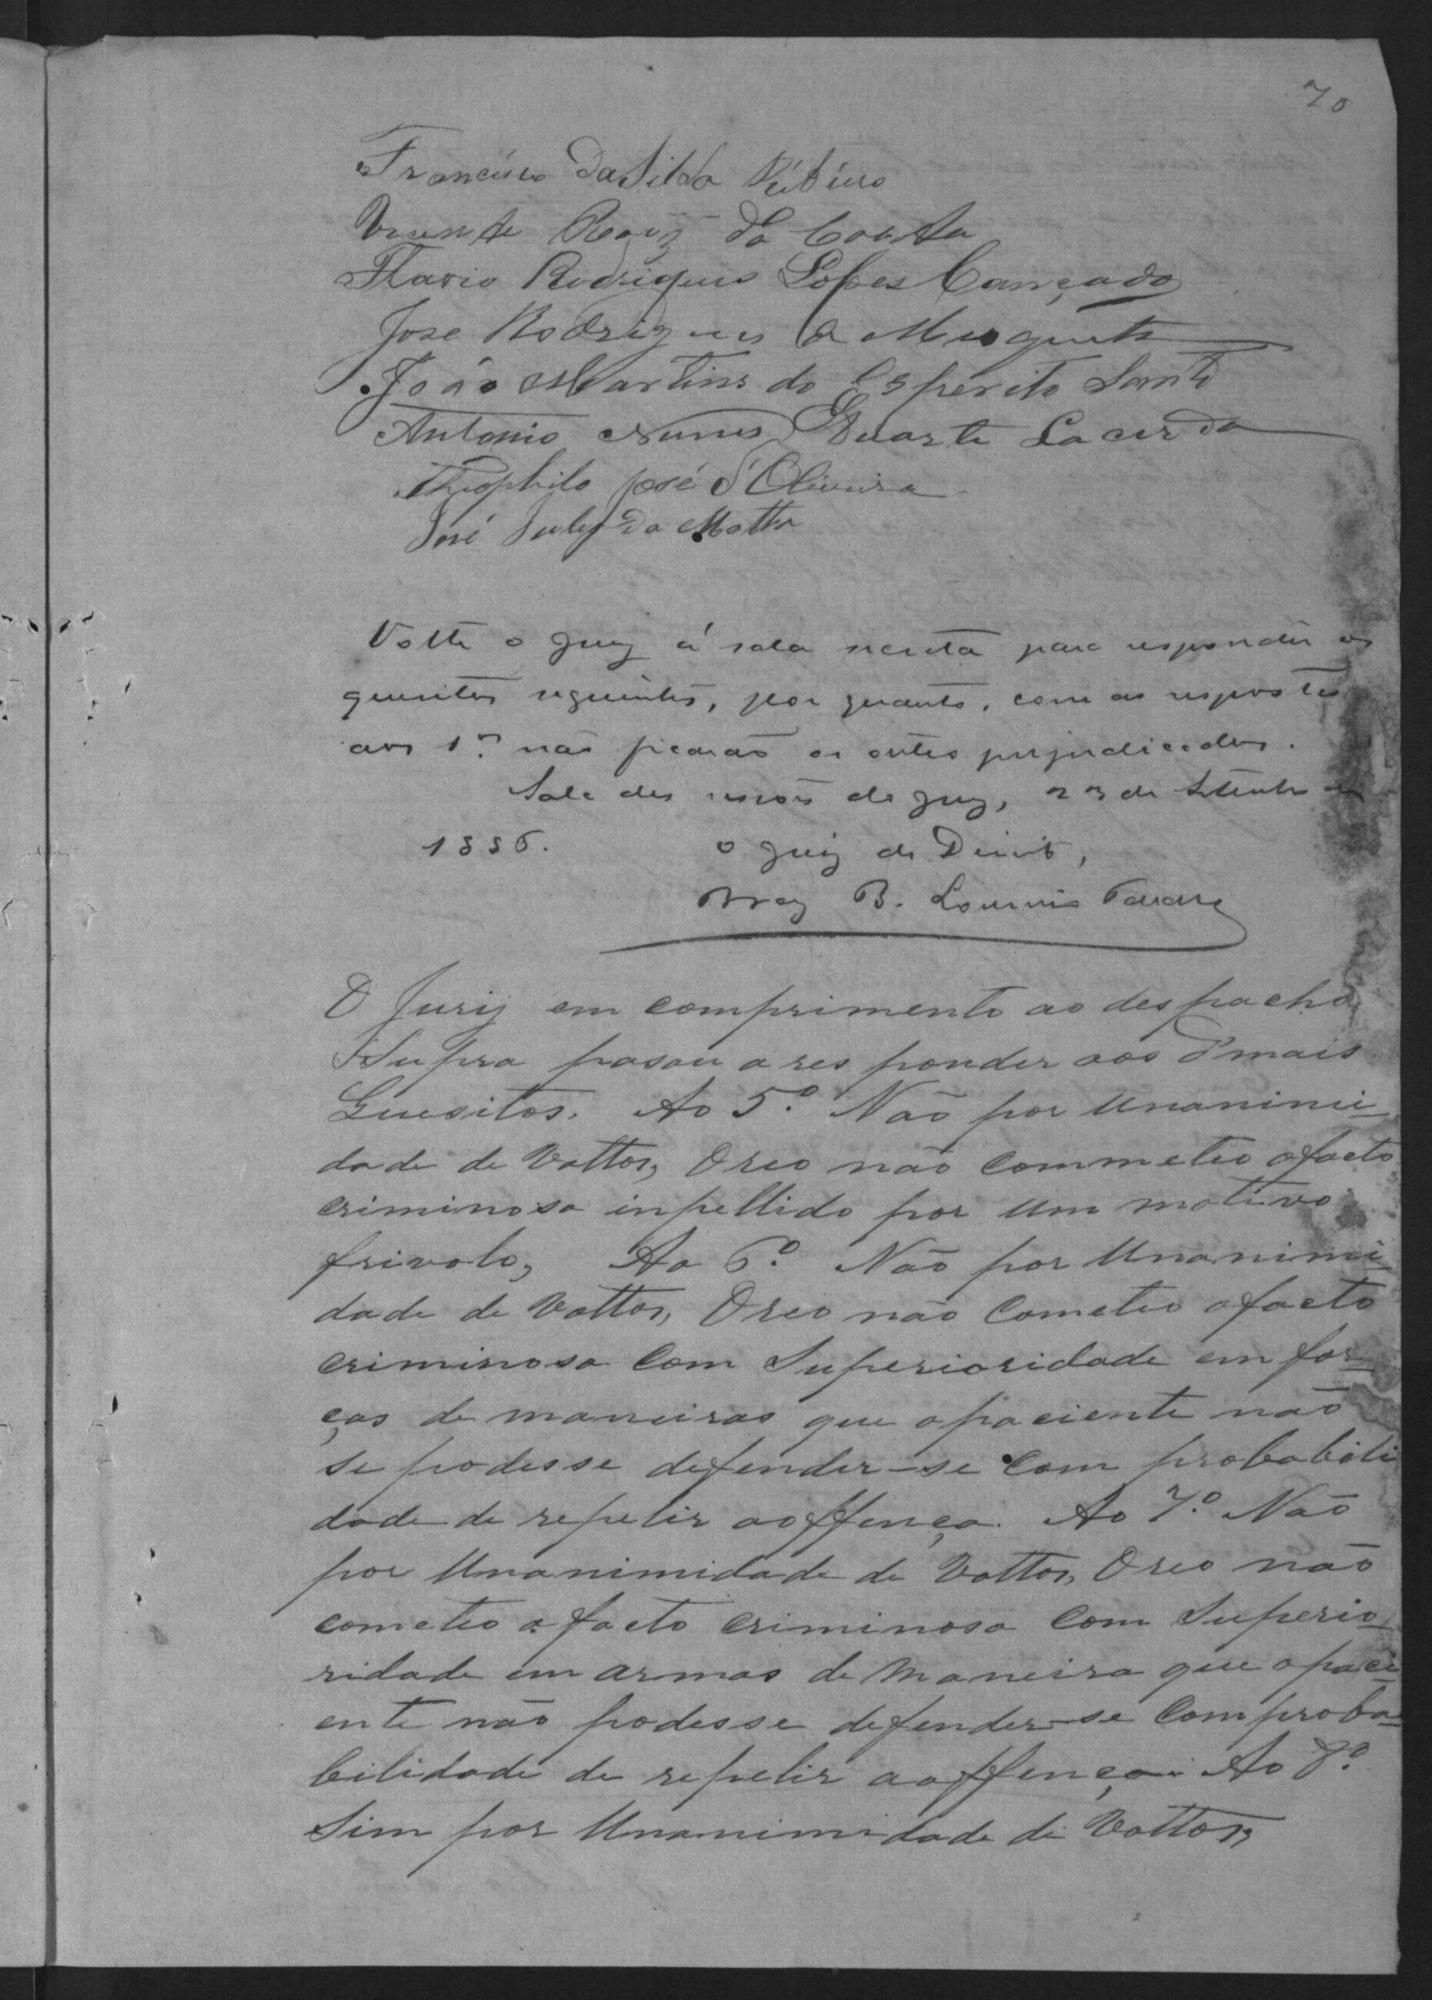 70
Francisco da Silva Ribeiro
Vicente Roiz da Costa
Flavio Rodrigues Lopes Cançado
Jose Rodrigues de Mesquita
João Martins do Esperito Santo
Antonio Nunes Duarte Lacerda
Theophilo José d'Oliveira
José Julio da Motta
Volte o Jury á sala secreta para responder os
quesitos seguintes, por quanto, com as respostas
aos 1.os não ficarão os outros prejudicados.
Sala das sessões do Jury, 23 de Setembro de
1886. O Juiz de Direito,
Braz B. Loureiro Tavares
O Jury em comprimento ao despacho
Supra pasou a res ponder aos d'mais
Quesitos. Ao 5.º Não por Unanimi-
dade de Vottos, O reo não Commeteo o facto
criminoso inpellido por Um motivo
frivolo, Ao 6.º Não por Unanimi-
dade de Vottos, O reo não Cometeo o facto
criminoso Com Superioridade em for-
ças de maneiras que o paciente não
se podesse defender-se Com probabili
dade de repelir a offença. Ao 7.º Não
por Unanimidade de Vottos, O reo não
cometeo o facto criminoso Com Superio-
ridade em armas de Maneira que o paci
ente não podesse defender-se Com proba-
bilidade de repelir a offença. Ao 8.º
Sim por Unanimidade de Vottos,